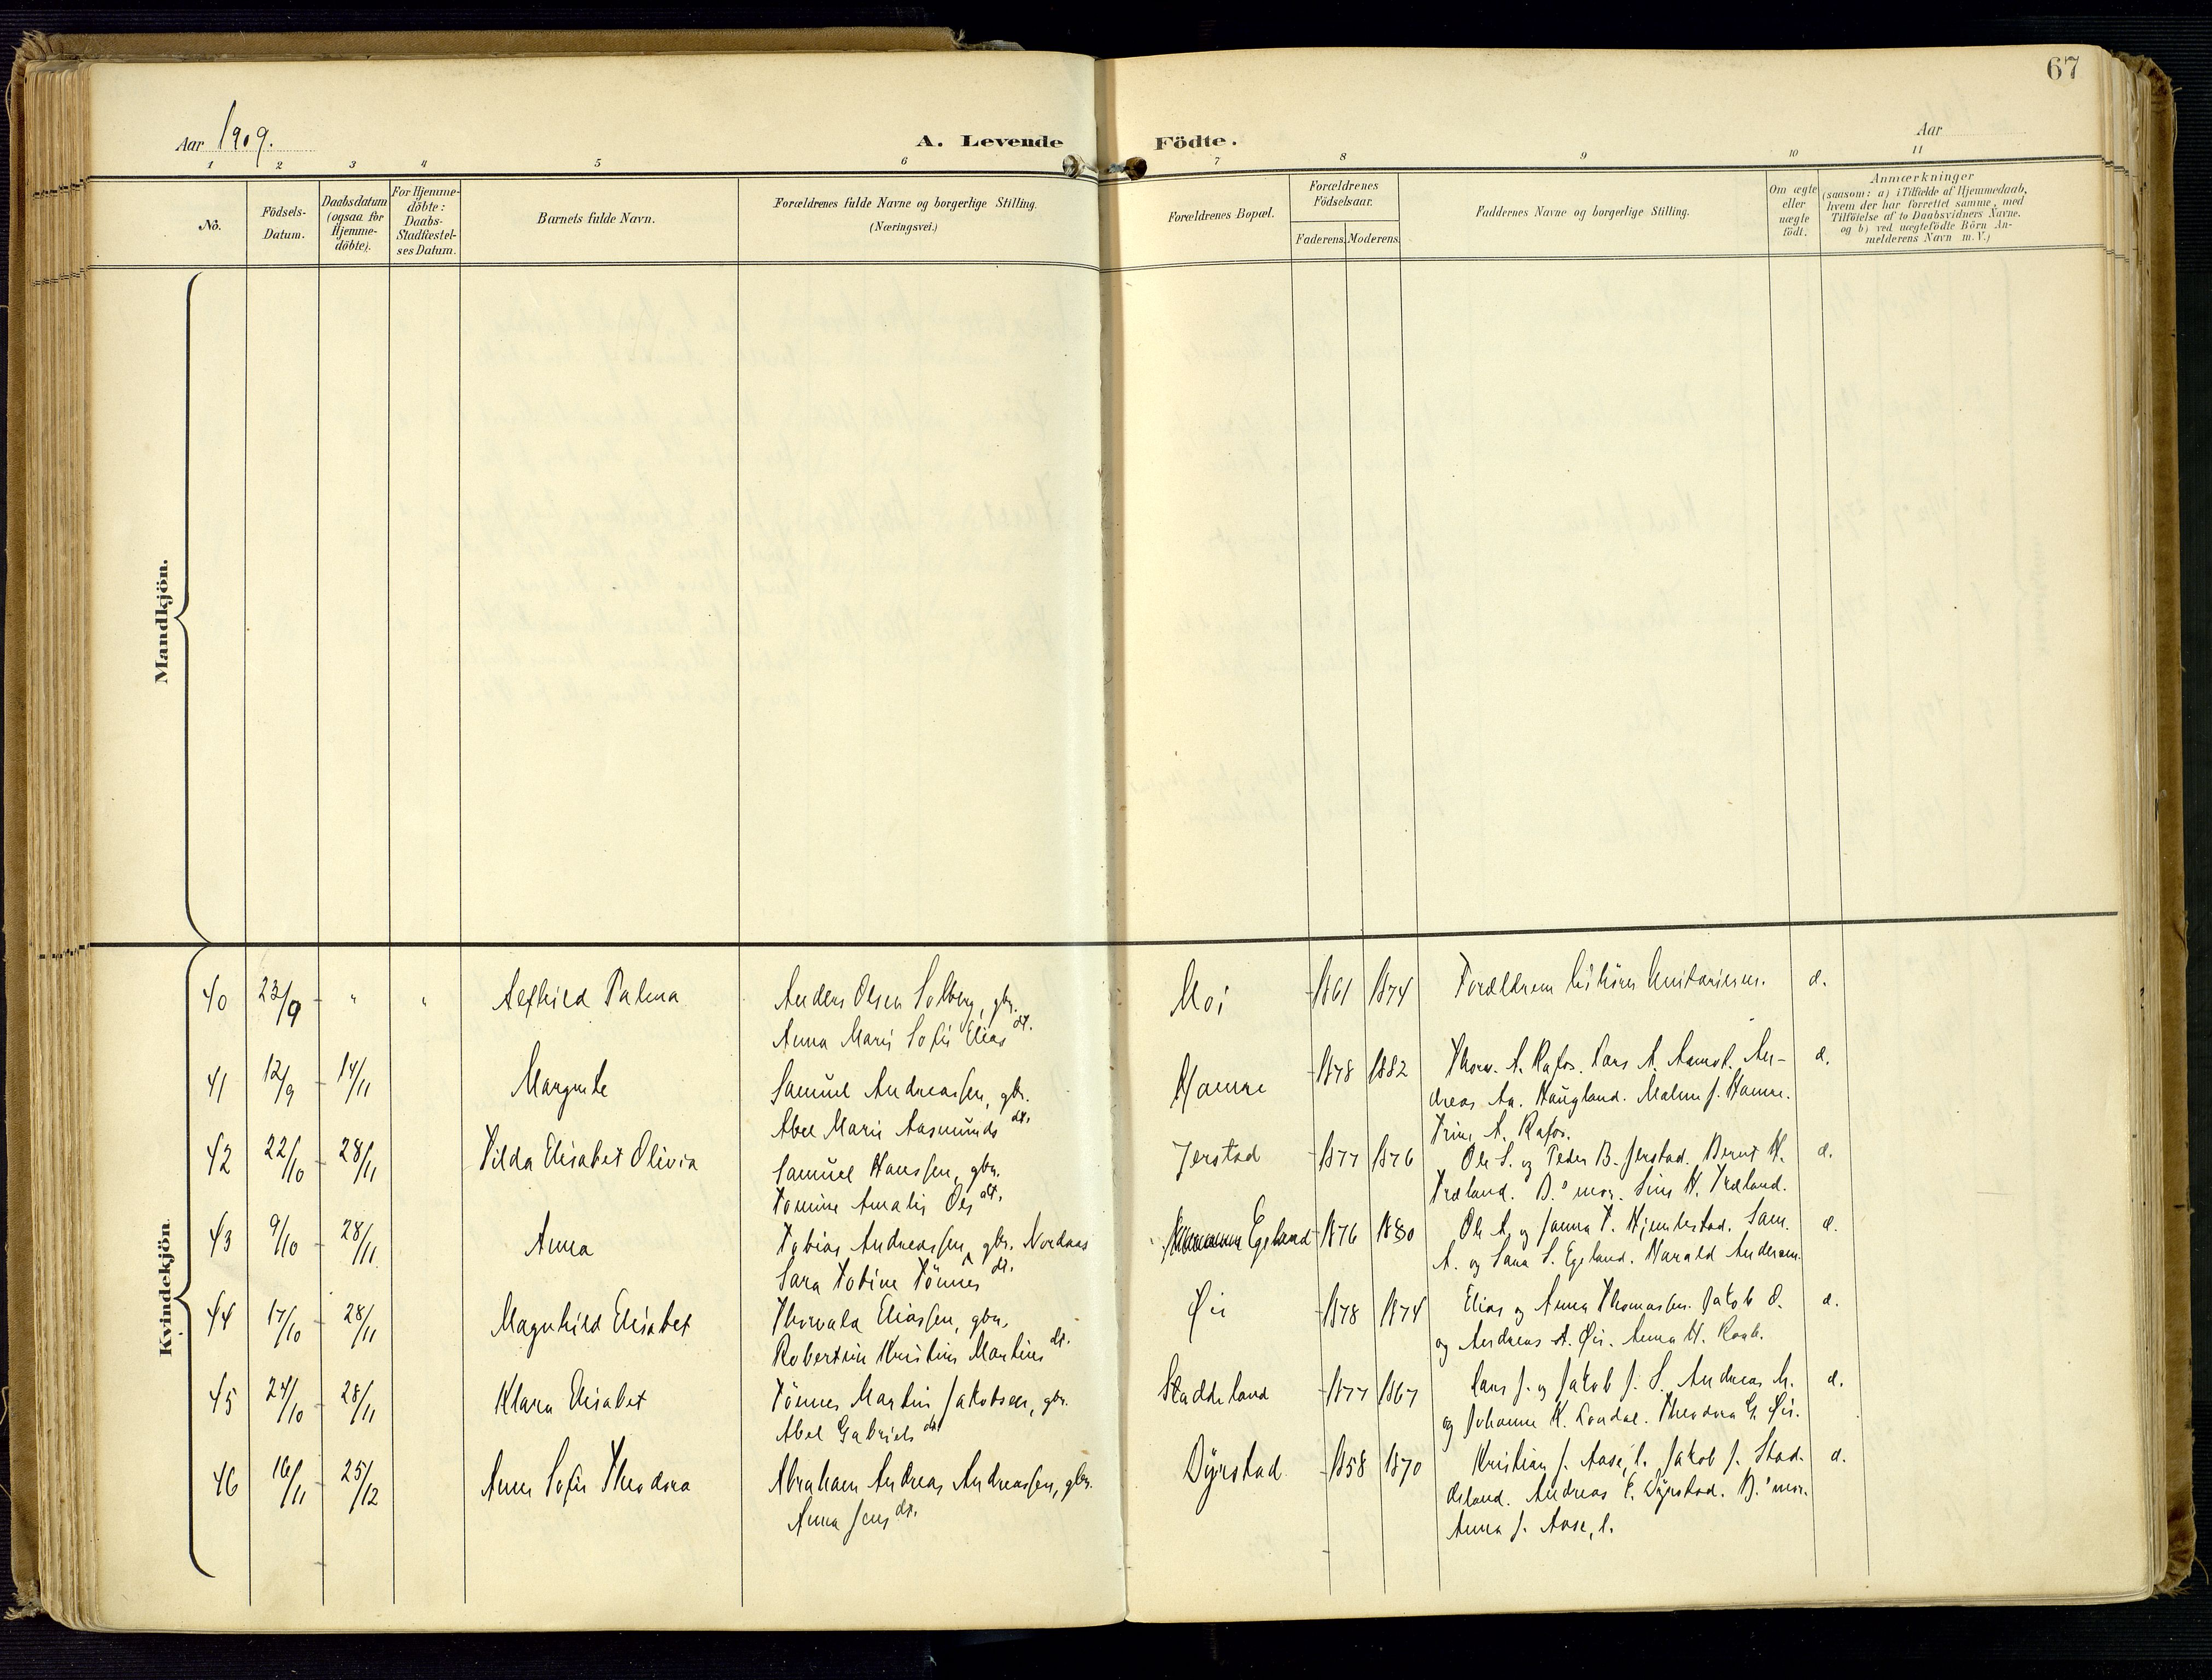 67
Aar 1909.
A. Levende Födte.
Aar
1 2 3 4 5 6 7 8 9 10 11
No.
Födsels-
Datum.
Daabsdatum
(ogsaa for
Hjemme-
döbte).
For Hjemme-
döbte:
Daabs-
Stadfæstel-
ses Datum.
Barnets fulde Navn.
Forældrenes fulde Navne og borgerlige Stilling.
(Næringsvei.)
Forældrenes Bopæl.
Forældrenes
Födselsaar.
Faderens. Moderens.
Faddernes Navne og borgerlige Stilling.
Om ægte
eller
uægte
födt.
Anmærkninger
(saasom: a) i Tilfælde af Hjemmedaab,
hvem der har forrettet samme, med
Tilföielse af to Daabsvidners Navne.
og b) ved uægtefödte Börn An-
melderens Navn m. V.)
Mandkjön.
Kvindekjön.
40 23/9 " " Alfhild Palma Anders Olsen Solberg, gbr. Moi 1861 1874 Forældrene Unitarierne. æ.
Anna Marie Sofie Elias dt.
41 12/9 14/11 Margrete Samuel Andreassen, gbr. Hamre 1878 1882 Thorv. A. Rafos. Lars A. An- æ.
dreas Aa. Haugland. Malene J. Hamre.
Abel Marie Aasmunds dt.
Trine A. Rafos.
42 22/10 28/11 Tilda Elisabet Olivia Samuel Hanssen, gbr. Jerstad 1877 1876 Ole S. og Peder B. Jerstad. Bernt H. æ.
Træland. B.s mor. Sine H. Træland.
Tomine Amalie Ols dt.
43 9/10 28/11 Anna Tobias Andreassen, gbr. Nordaas Egeland 1876 1880 Ole A. og Janna T. Hjemlestad. Sam. æ.
A. og Sara S. Egeland. Harald Andersen.
Sara Tobine Tönnes dt.
44 17/10 28/11 Magnhild Elisabet Thorvald Eliassen, gbr. Øie 1878 1874 Elias og Anna Thomassen. Jakob O. æ.
og Andreas A. Øie. Anna H.
Robertine Kristine Martins dt.
45 24/10 28/11 Klara Elisabet Tönnes Martin Jakobsen, gbr. Staddeland 1877 1867 Lars J. og Jakob J. S. Andreas M. æ.
og Johanne K. Theodora G. Øie.
Abel Gabriels dt.
46 16/11 25/12 Anna Sofie Theodora Abraham Andreas Andreassen, gbr. Dyrstad 1858 1870 Kristian J. Aase, l. Jakob J. Stad- æ.
deland. Andreas E. Dyrstad. B.s mor.
Anna Jens dt.
Anna J. Aase, l.